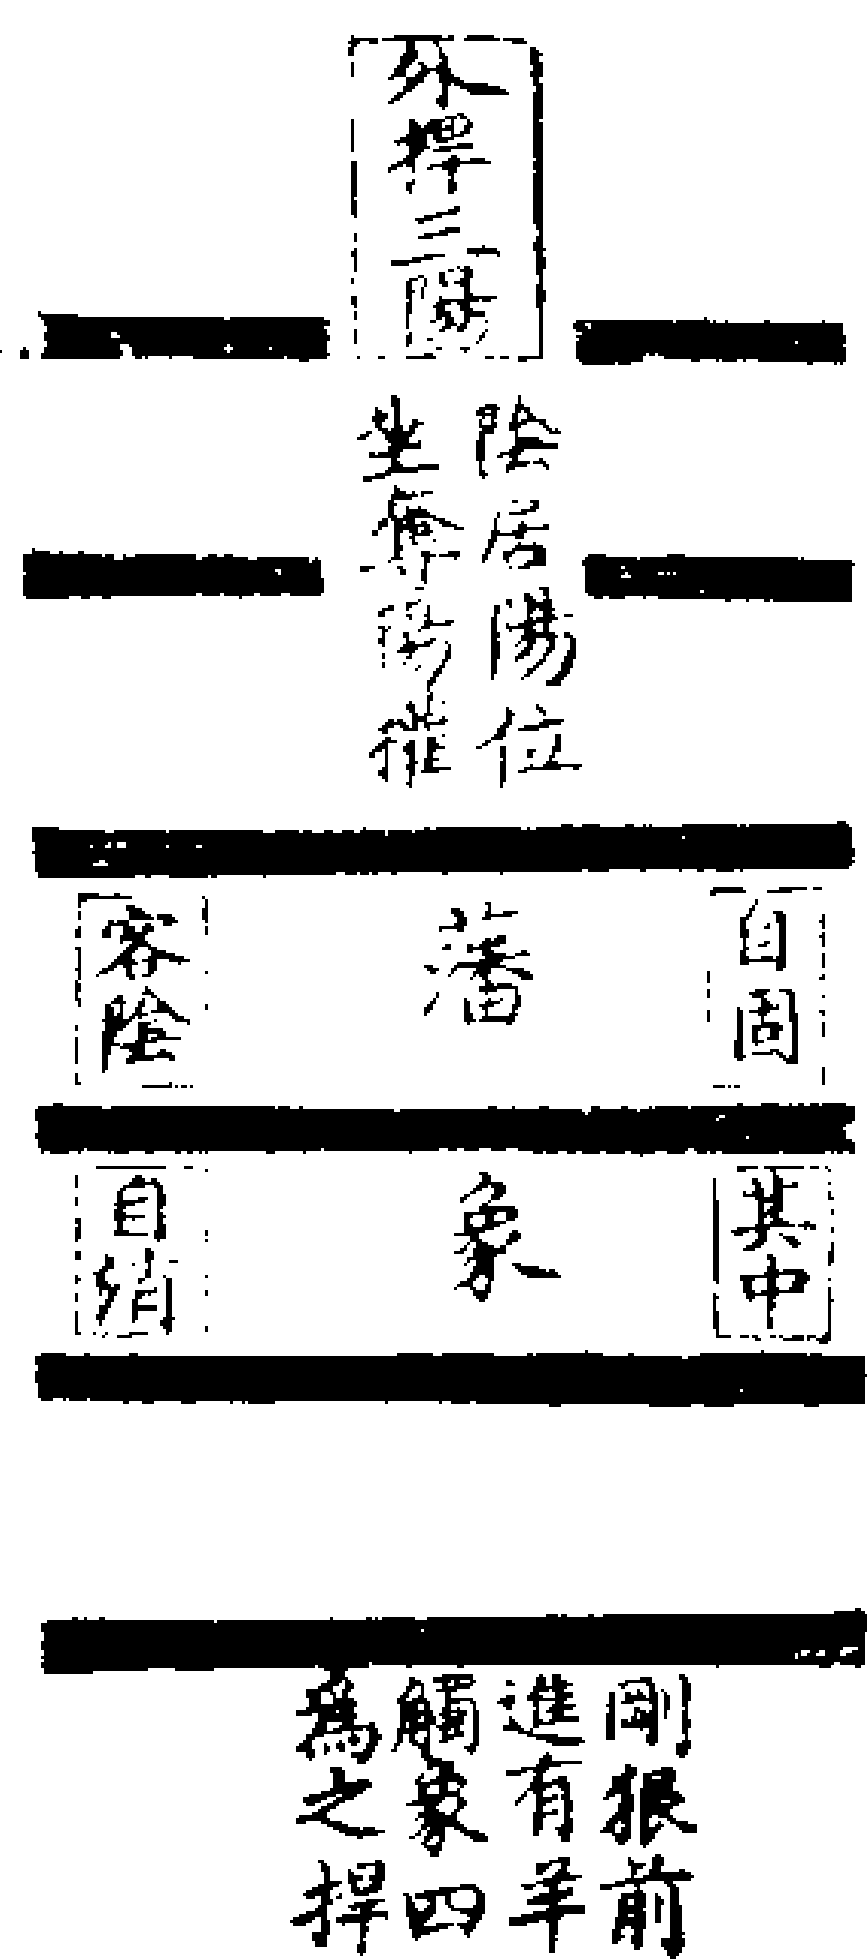 外捍三陽
陰居陽位
坐奪陽摧
自固
藩
容陰
其中
象
剛狠前
進有羊
觸象四
為之捍